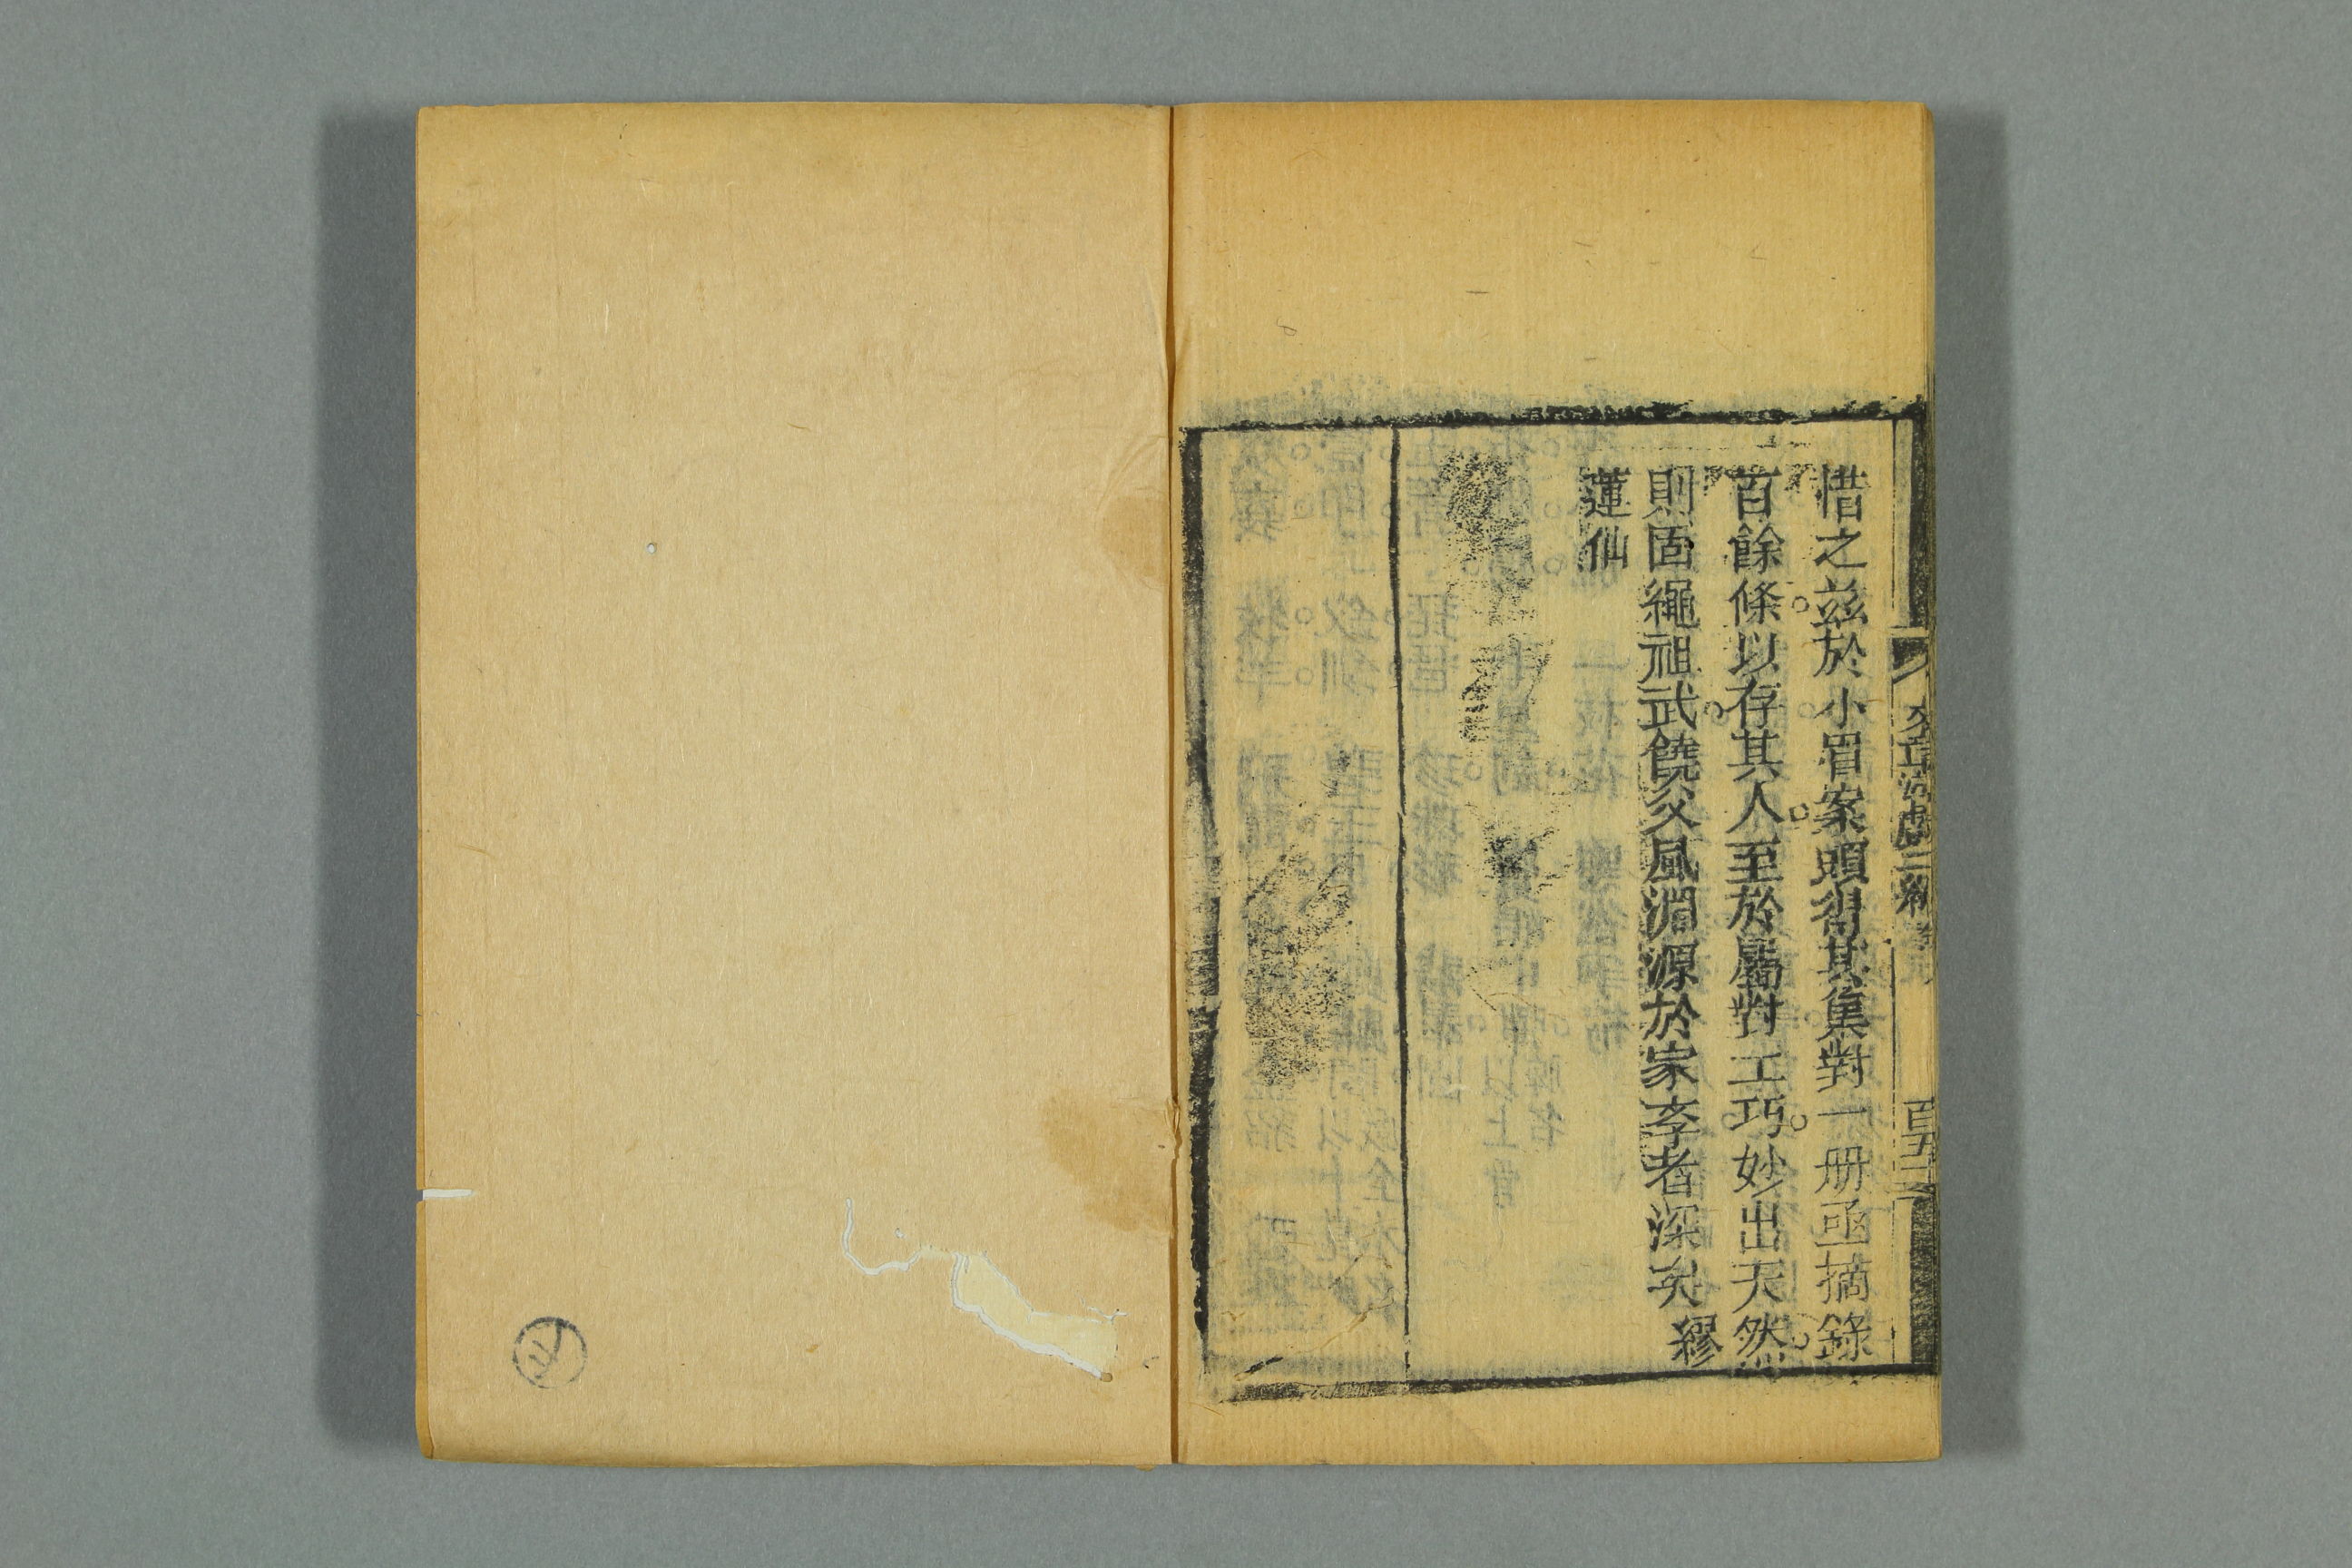 惜之茲於小眉案頭得其集對一册亟摘錄
百餘條以存其人至於屬對工巧妙出天然
則固繩祖武饒父風淵源於家李者深矣繆
蓮仙
文章游戲二編